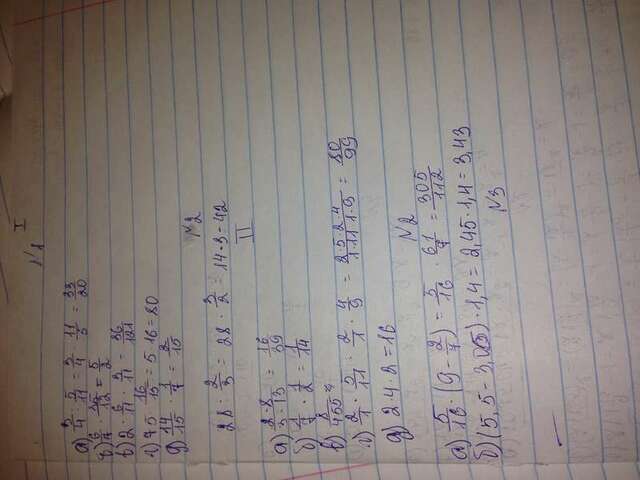 I
№1
а) 3/4 : 5/11 = 3/4 · 11/5 = 33/20
б) 6/7 · 35/12 = 5/2
в) 2 · 6/11 · 3/11 = 36/121
г) 75 · 16/15 = 5·16 = 80
д) 14/15 · 1/7 = 2/15
№2
28 : 2/3 = 28 · 3/2 = 14·3 = 42
II
а) 2·8/3·13 = 16/39
б) 1/7 · 1/2 = 1/14
в) 8/455 =
г) 2/1 · 5/11 · 2/1 · 4/9 = 2·5·2·4/1·11·1·9 = 80/99
д) 2·4·2 = 16
№2
а) 5/16 · (9 - 2/7) = 5/16 · 61/7 = 305/112
б) (5,5 - 3,05) · 1,4 = 2,45 · 1,4 = 3,43
№3